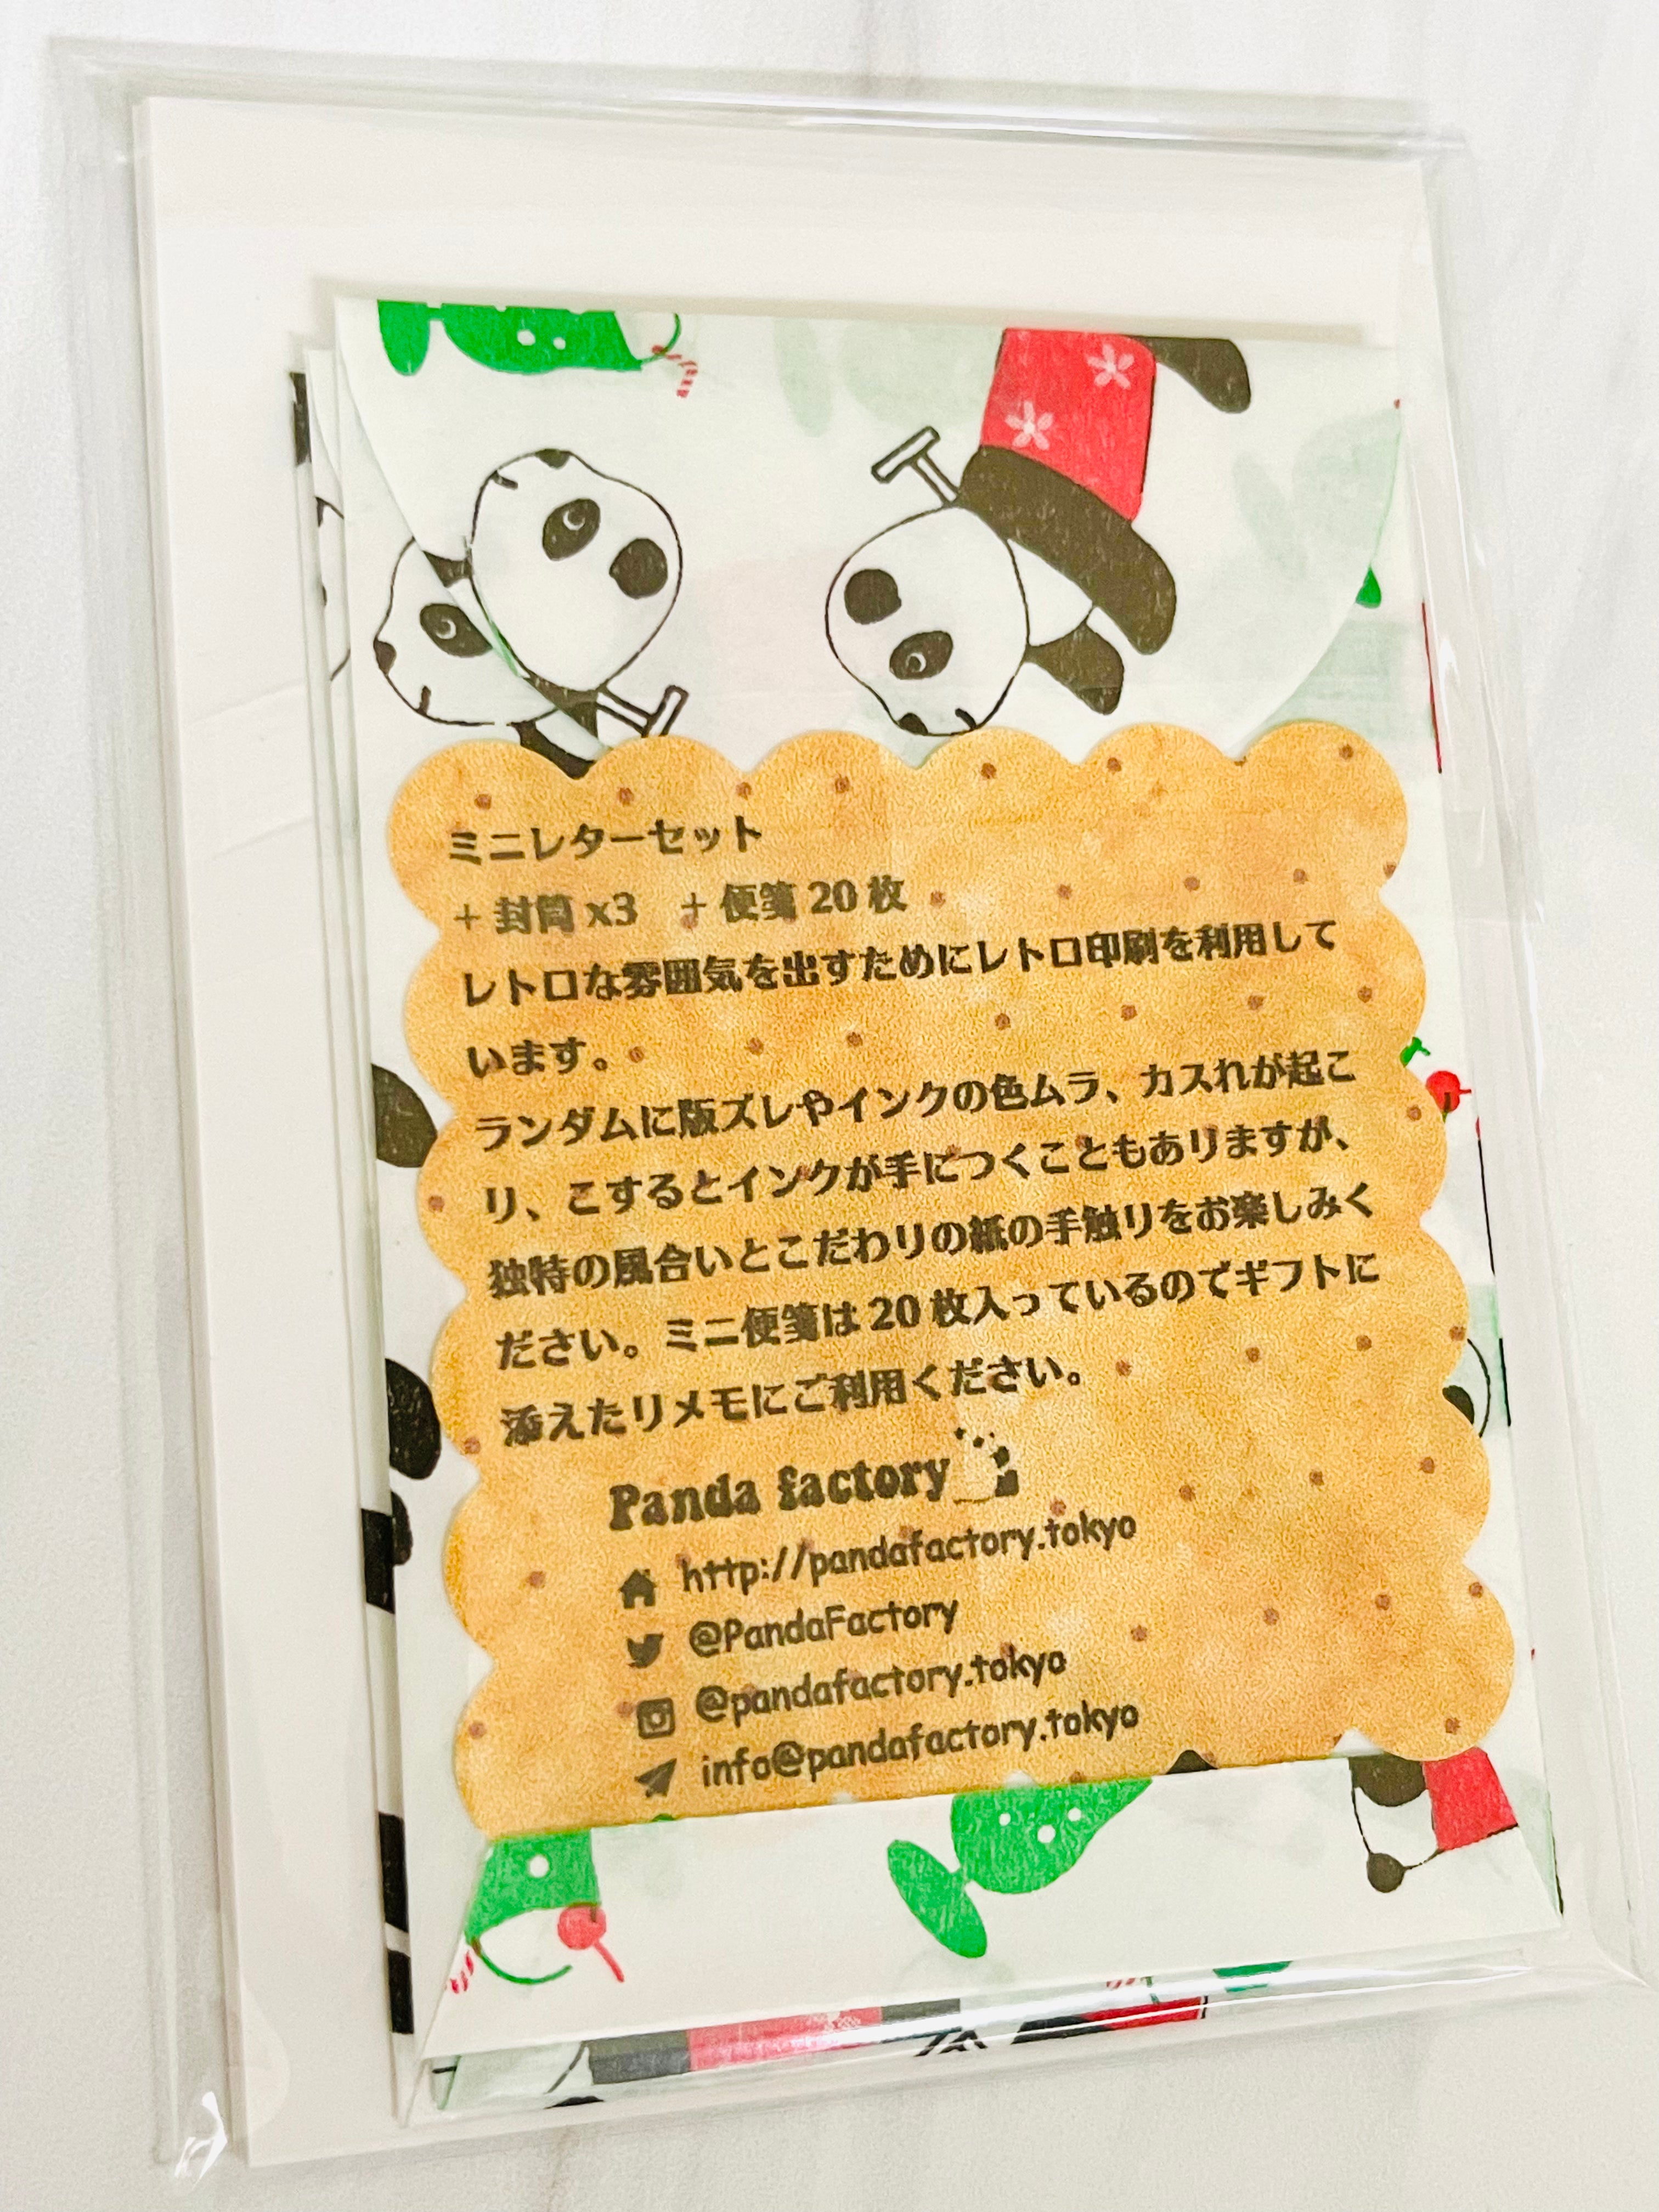 ミニレターセット
+ 封筒 x3　+ 便箋 20 枚
レトロな雰囲気を出すためにレトロ印刷を利用して
います。
ランダムに版ズレやインクの色ムラ、カスれが起こ
り、こするとインクが手につくこともありますが、
独特の風合いとこだわりの紙の手触りをお楽しみく
ださい。ミニ便箋は 20 枚入っているのでギフトに
添えたりメモにご利用ください。
Panda factory
http://pandafactory.tokyo
@PandaFactory
@pandafactory.tokyo
info@pandafactory.tokyo